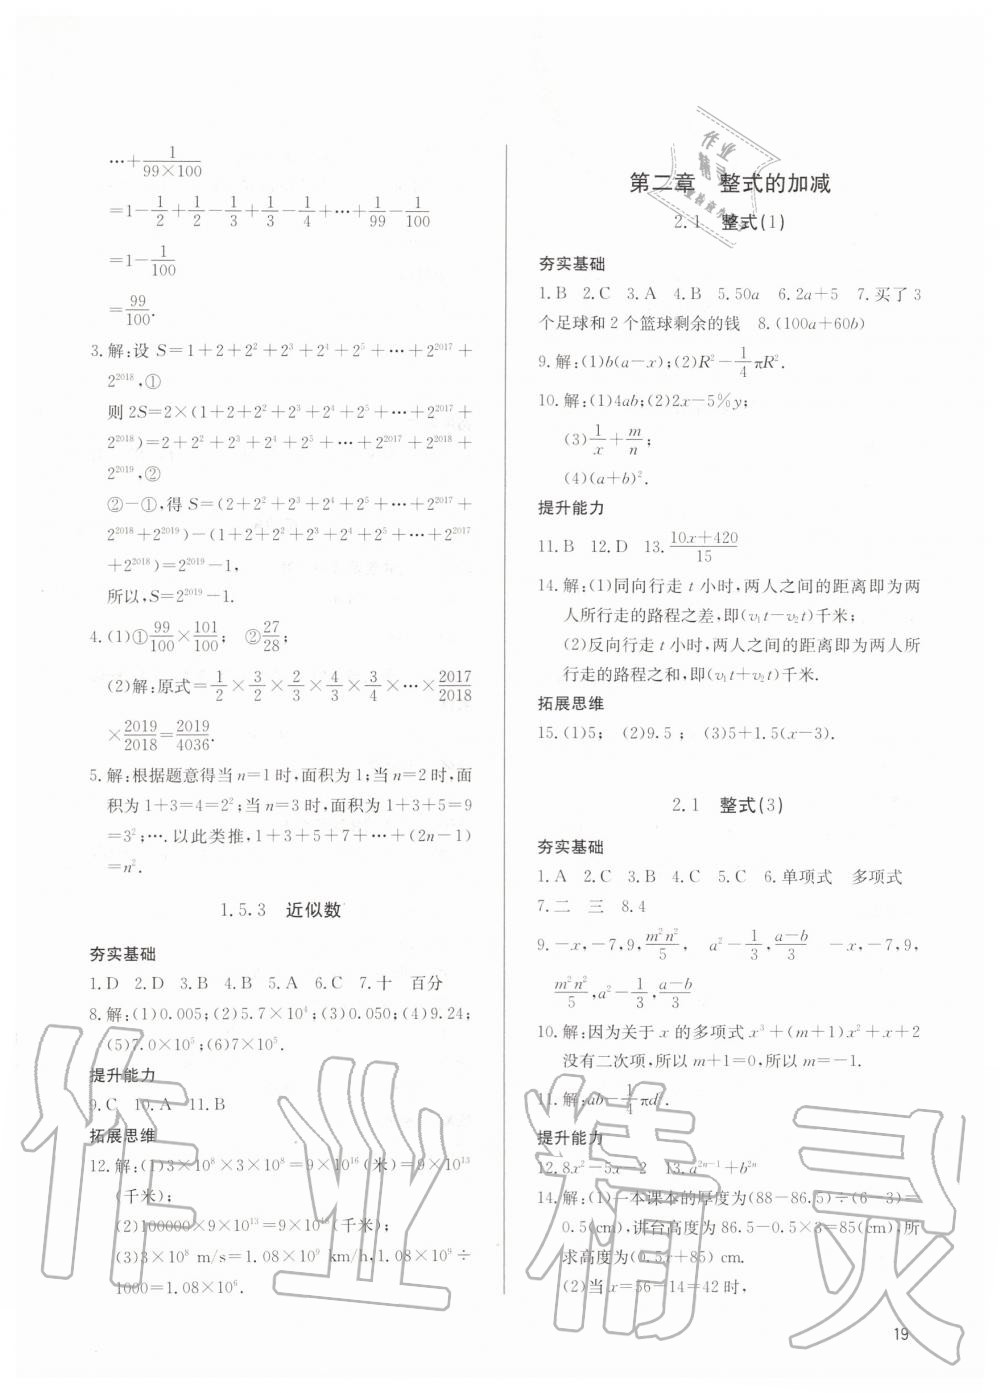 …+1/(99×100)
=1-1/2+1/2-1/3+1/3-1/4+…+1/99-1/100
=1-1/100
=99/100.
3.解:设 S=1+2+2²+2³+2⁴+2⁵+…+2²⁰¹⁷+
2²⁰¹⁸,①
则 2S=2×(1+2+2²+2³+2⁴+2⁵+…+2²⁰¹⁷+
2²⁰¹⁸)=2+2²+2³+2⁴+2⁵+…+2²⁰¹⁷+2²⁰¹⁸+
2²⁰¹⁹,②
②-①,得 S=(2+2²+2³+2⁴+2⁵+…+2²⁰¹⁷+
2²⁰¹⁸+2²⁰¹⁹)-(1+2+2²+2³+2⁴+2⁵+…+2²⁰¹⁷
+2²⁰¹⁸)=2²⁰¹⁹-1,
所以,S=2²⁰¹⁹-1.
4.(1)①99/100×101/100; ②27/28;
(2)解:原式=1/2×3/2×2/3×4/3×3/4×…×2017/2018
×2019/2018=2019/4036.
5.解:根据题意得当 n=1 时,面积为 1;当 n=2 时,面
积为 1+3=4=2²;当 n=3 时,面积为 1+3+5=9
=3²;….以此类推,1+3+5+7+…+(2n-1)
=n².
1.5.3 近似数
夯实基础
1.D 2.D 3.B 4.B 5.A 6.C 7.十 百分
8.解:(1)0.005;(2)5.7×10⁴;(3)0.050;(4)9.24;
(5)7.0×10⁵;(6)7×10⁵.
提升能力
9.C 10.A 11.B
拓展思维
12.解:(1)3×10⁸×3×10⁸=9×10¹⁶(米)=9×10¹³
(千米);
(2)100000×9×10¹³=9×10¹⁸(千米);
(3)3×10⁸ m/s=1.08×10⁹ km/h,1.08×10⁹÷
1000=1.08×10⁶.
第二章 整式的加减
2.1 整式(1)
夯实基础
1.B 2.C 3.A 4.B 5.50a 6.2a+5 7.买了 3
个足球和 2 个篮球剩余的钱 8.(100a+60b)
9.解:(1)b(a-x);(2)R²-1/4πR².
10.解:(1)4ab;(2)2x-5%y;
(3)1/x+m/n;
(4)(a+b)².
提升能力
11.B 12.D 13.(10x+420)/15
14.解:(1)同向行走 t 小时,两人之间的距离即为两
人所行走的路程之差,即(v₁t-v₂t)千米;
(2)反向行走 t 小时,两人之间的距离即为两人所
行走的路程之和,即(v₁t+v₂t)千米.
拓展思维
15.(1)5; (2)9.5 ; (3)5+1.5(x-3).
2.1 整式(3)
夯实基础
1.A 2.C 3.B 4.C 5.C 6.单项式 多项式
7.二 三 8.4
9.-x,-7,9,m²n²/5, a²-1/3,(a-b)/3 -x,-7,9,
m²n²/5,a²-1/3,(a-b)/3
10.解:因为关于 x 的多项式 x³+(m+1)x²+x+2
没有二次项,所以 m+1=0,所以 m=-1.
11.解:ab-1/4πd².
提升能力
12.8x²-5x-2 13.a²ⁿ⁻¹+b²ⁿ
14.解:(1)一本课本的厚度为(88-86.5)÷(6-3)=
0.5(cm),讲台高度为 86.5-0.5×3=85(cm),所
求高度为(0.5x+85) cm.
(2)当 x=56-14=42 时,
19
作业精灵
作业
精灵